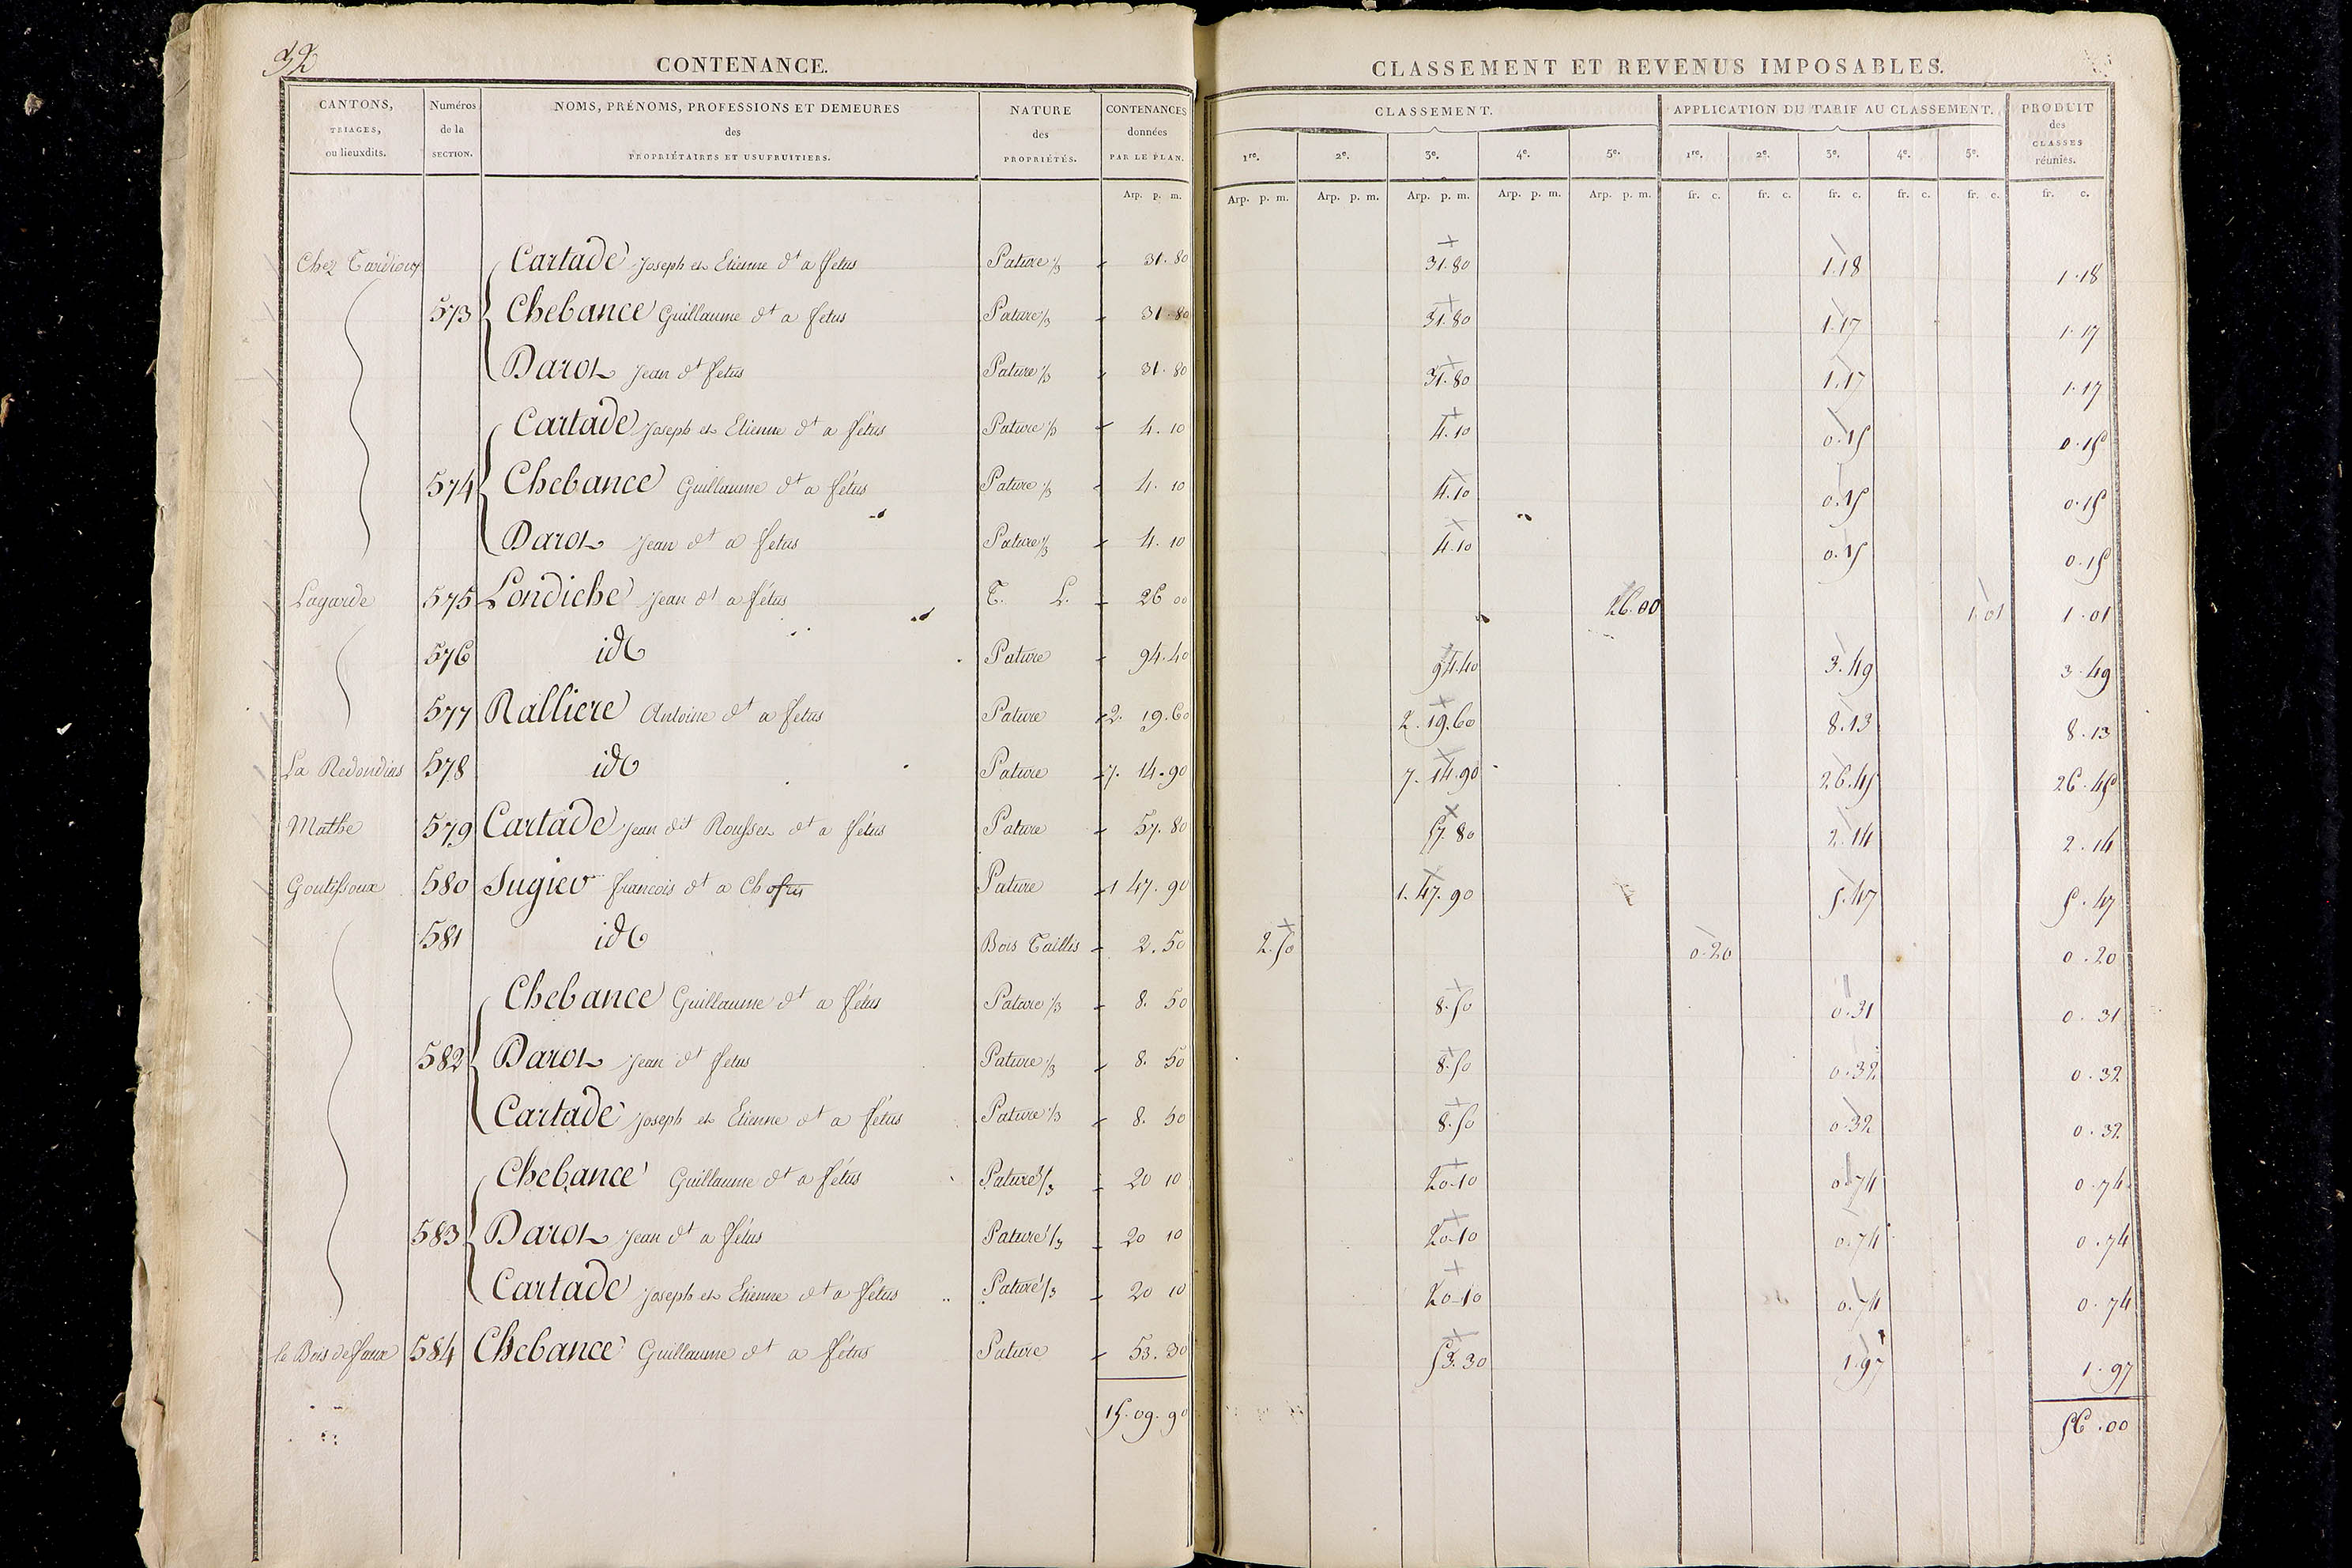 32
CONTENANCE.
CLASSEMENT ET REVENUS IMPOSABLES.
CANTONS, TRIAGES, ou lieuxdits.
Numéros de la SECTION.
NOMS, PRÉNOMS, PROFESSIONS ET DEMEURES des PROPRIÉTAIRES ET USUFRUITIERS.
NATURE des PROPRIÉTÉS.
CONTENANCES données PAR LE PLAN.
CLASSEMENT.
1re. 2e. 3e. 4e. 5e.
APPLICATION DU TARIF AU CLASSEMENT.
1re. 2e. 3e. 4e. 5e.
PRODUIT des CLASSES réunies.
Arp. p. m. Arp. p. m. Arp. p. m. Arp. p. m. Arp. p. m. Arp. p. m. fr. c. fr. c. fr. c. fr. c. fr. c. fr. c.
Chez Cartade Joseph et Etienne dt a fétus Pature 1/3 31.80 31.80 1.18 1.18
573 Chebance Guillaume dt a fetus Pature 1/3 31.80 31.80 1.17 1.17
Darot Jean dt fetus Pature 1/3 31.80 31.80 1.17 1.17
Cartade Joseph et Etienne dt a fétus Pature 1/3 4.10 4.10 0.15 0.15
574 Chebance Guillaume dt a fétus Pature 1/3 4. 10 4.10 0.15 0.15
Darot Jean dt a fétus Pature 1/3 4. 10 4.10 0.15 0.15
Lagarde 575 Londiche Jean dt a fétus T. L. 26 00 26.00 1.01 1.01
576 id Pature 94.40 94.40 3.49 3.49
577 Ralliere Antoine dt a fetus Pature 2. 19.60 2.19.60 8.13 8.13
La Redondias 578 id Pature 7. 14.90 7.14.90 26.45 26.45
Mathe 579 Cartade Jean dit Rousset dt a fétus Pature 57.80 57.80 2.14 2.14
Goutissoux 580 Sugier francois dt a Pature 1 47.90 1.47.90 5.47 5.47
581 id Bois Taillis 2.50 2.50 0.20 0.20
Chebance Guillaume dt a fétus Pature 1/3 8. 50 8.50 0.31 0.31
582 Darot Jean dt fetus Pature 1/3 8. 50 8.50 0.32 0.32
Cartade Joseph et Etienne dt a fétus Pature 1/3 8. 50 8.50 0.32 0.32
Chebance Guillaume dt a fétus Pature 1/3 20 10 20.10 0.74 0.74
583 Darot Jean dt a fétus Pature 1/3 20 10 20.10 0.74 0.74
Cartade Joseph et Etienne dt a fétus Pature 1/3 20 10 20.10 0.74 0.74
le Bois de faux 584 Chebance Guillaume dt a fétus Pature 53.30 53.30 1.97 1.97
15.09.90 56.00